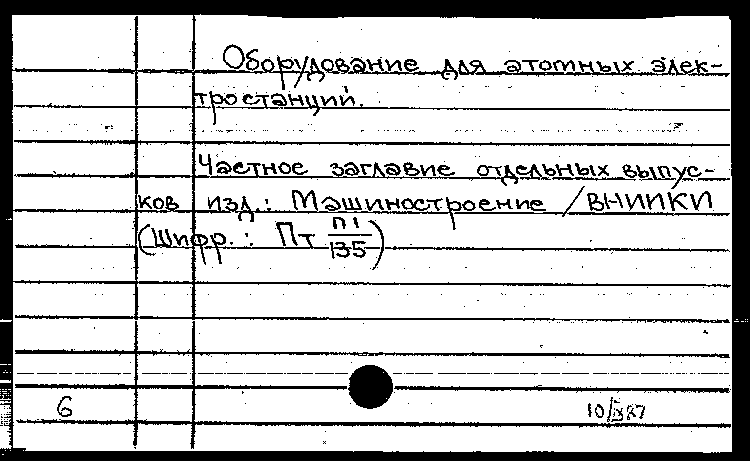 Оборудование для атомных элек-
тростанций.
Частное заглавие отдельных выпус-
ков изд.: Машиностроение / ВНИИКИ
(Шифр.: Пт П1/135)
6